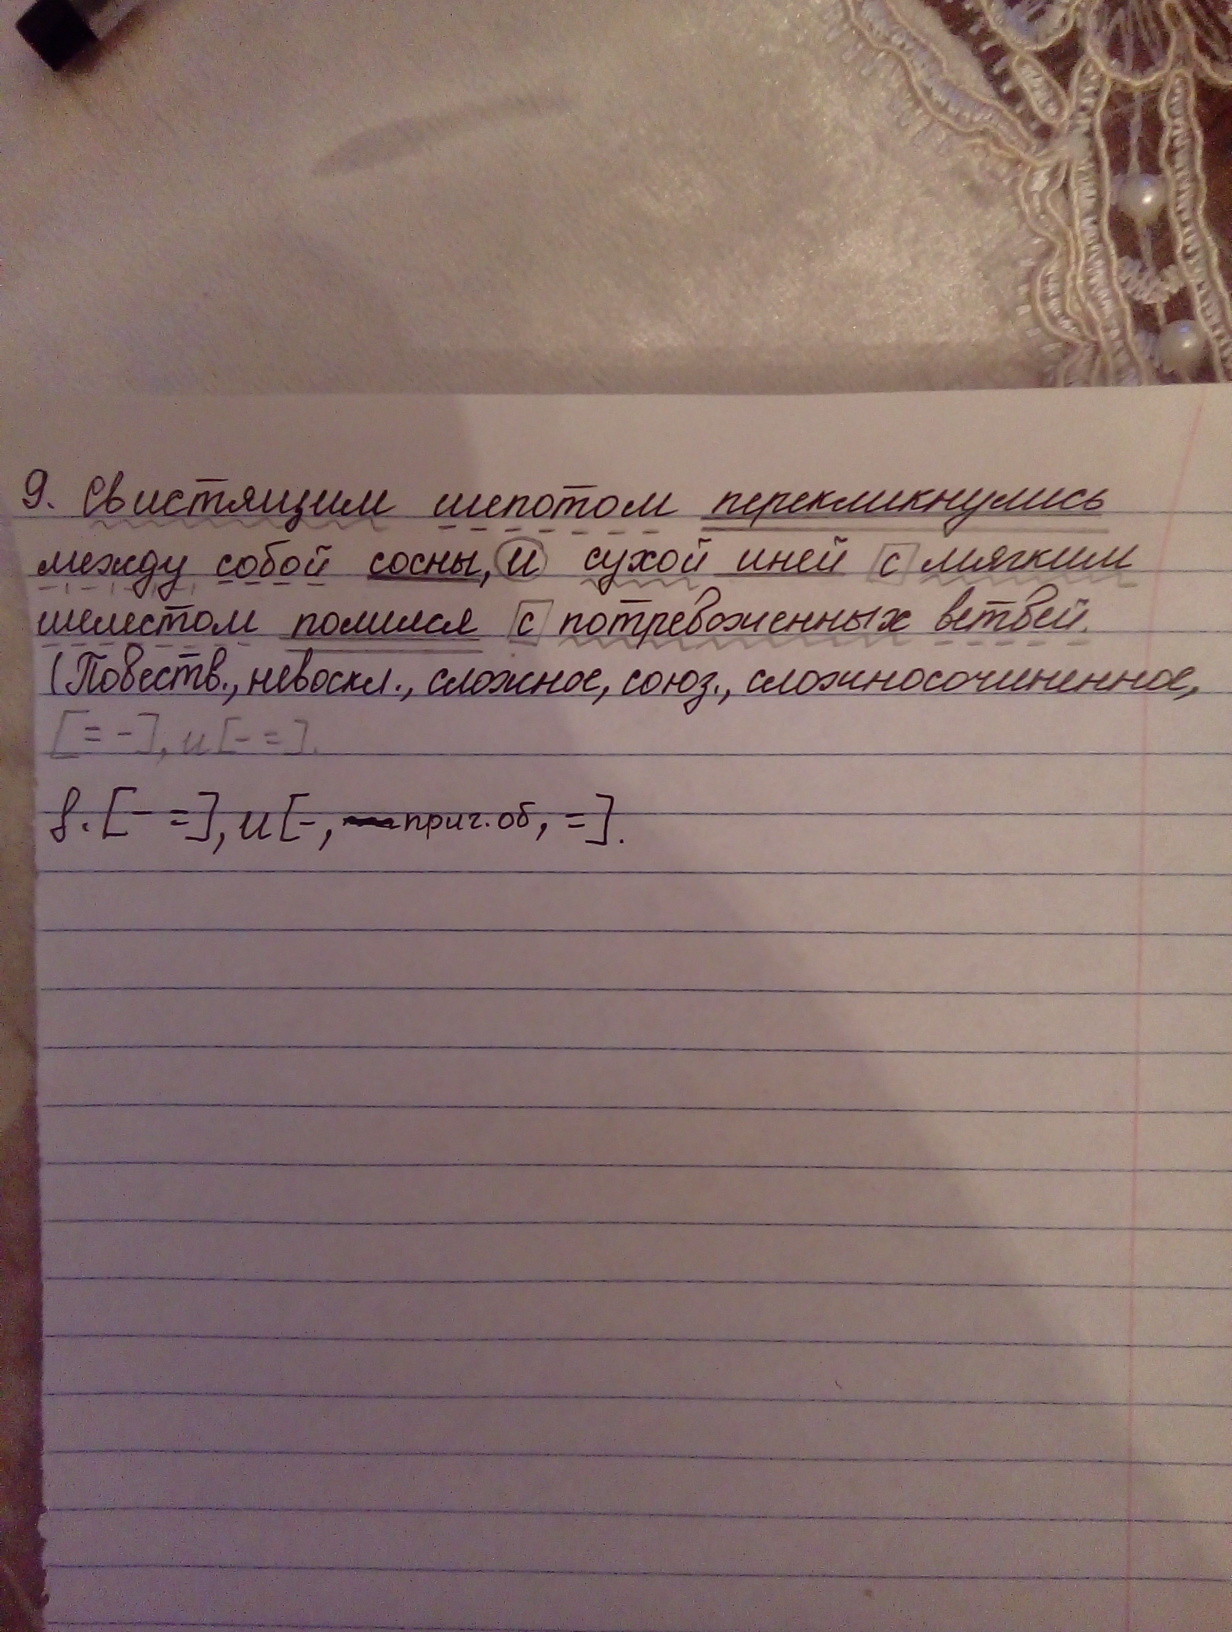 9. Свистящим шепотом перекликнулись
между собой сосны, и сухой иней с мягким
шелестом полился с потревоженных ветвей.
(Повеств., невоскл., сложное, союз., сложносочиненное,
[= -], и [- =].
8. [- =], и [-, прич. об, =].